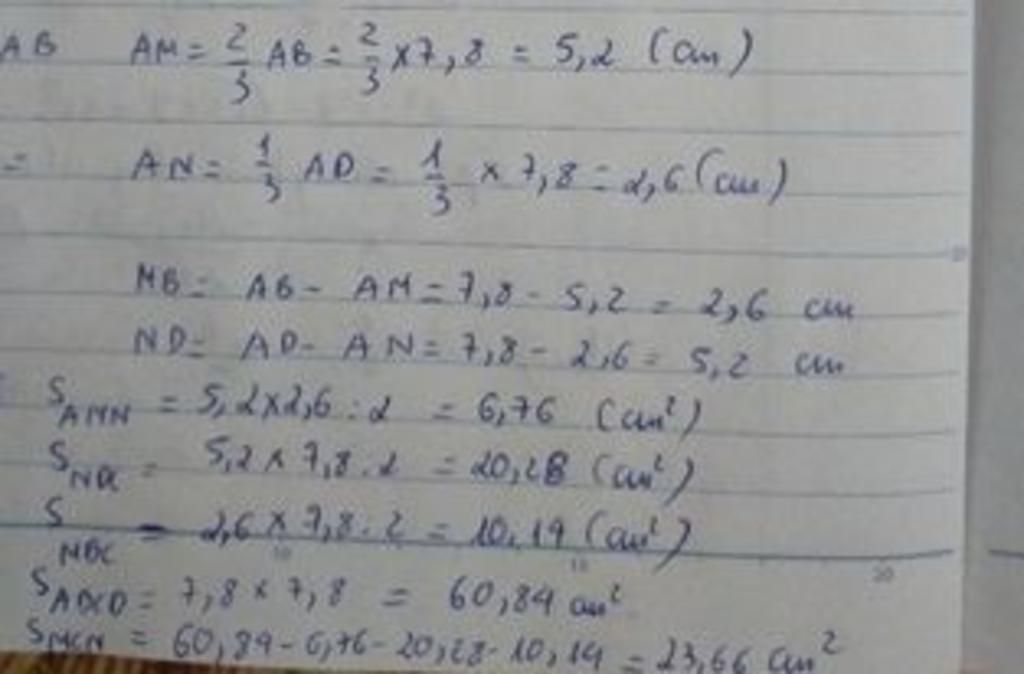 AB AM = 2/3 AB = 2/3 x 7,8 = 5,2 (cm)
= AN = 1/3 AD = 1/3 x 7,8 = 2,6 (cm)
MB = AB - AM = 7,8 - 5,2 = 2,6 cm
ND = AD - AN = 7,8 - 2,6 = 5,2 cm
S AMN = 5,2 x 2,6 : 2 = 6,76 (cm²)
S NDC = 5,2 x 7,8 : 2 = 20,28 (cm²)
S MBC = 2,6 x 7,8 : 2 = 10,14 (cm²)
S ABCD = 7,8 x 7,8 = 60,84 cm²
S MCN = 60,84 - 6,76 - 20,28 - 10,14 = 23,66 cm²